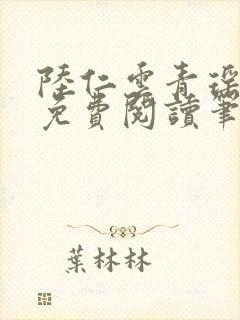 陸仁雲青瑶
免費閱讀筆
葉林林